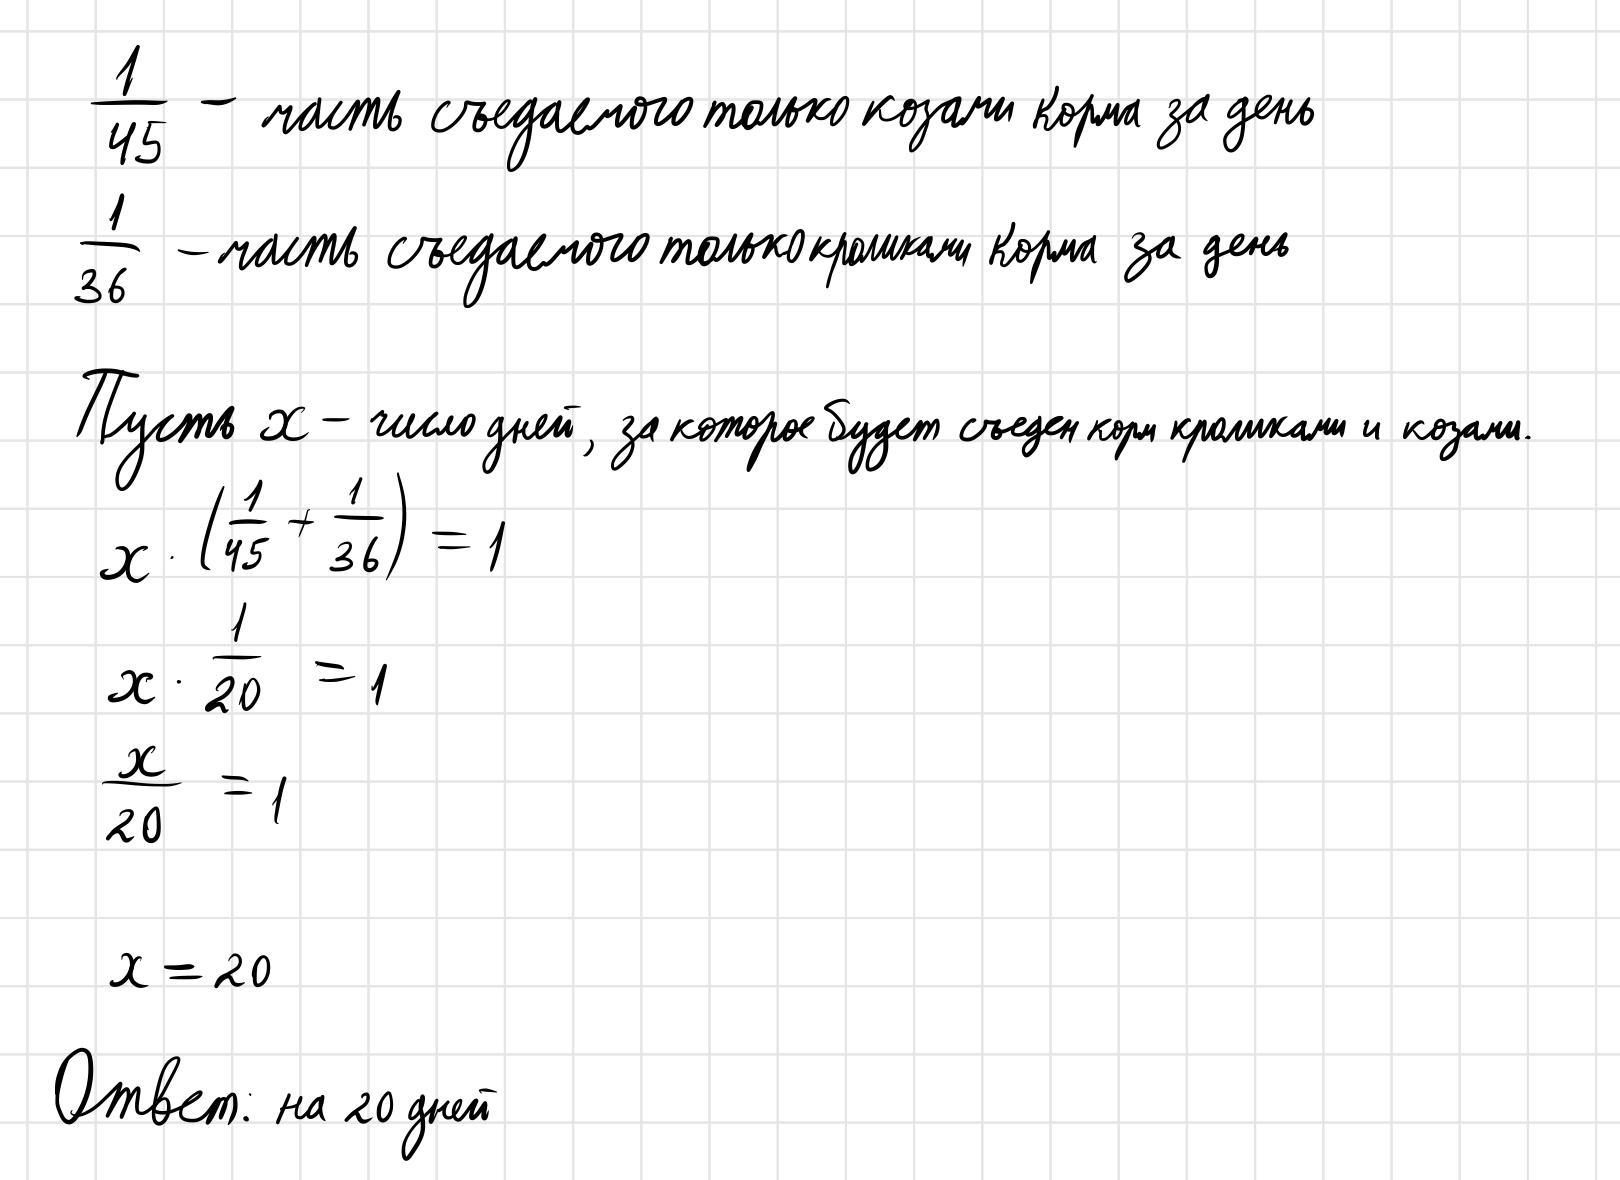 1/45 – часть съедаемого только козами корма за день
1/36 – часть съедаемого только кроликами корма за день
Пусть x – число дней, за которое будет съеден корм кроликами и козами.
x · (1/45 + 1/36) = 1
x · 1/20 = 1
x/20 = 1
x = 20
Ответ: на 20 дней